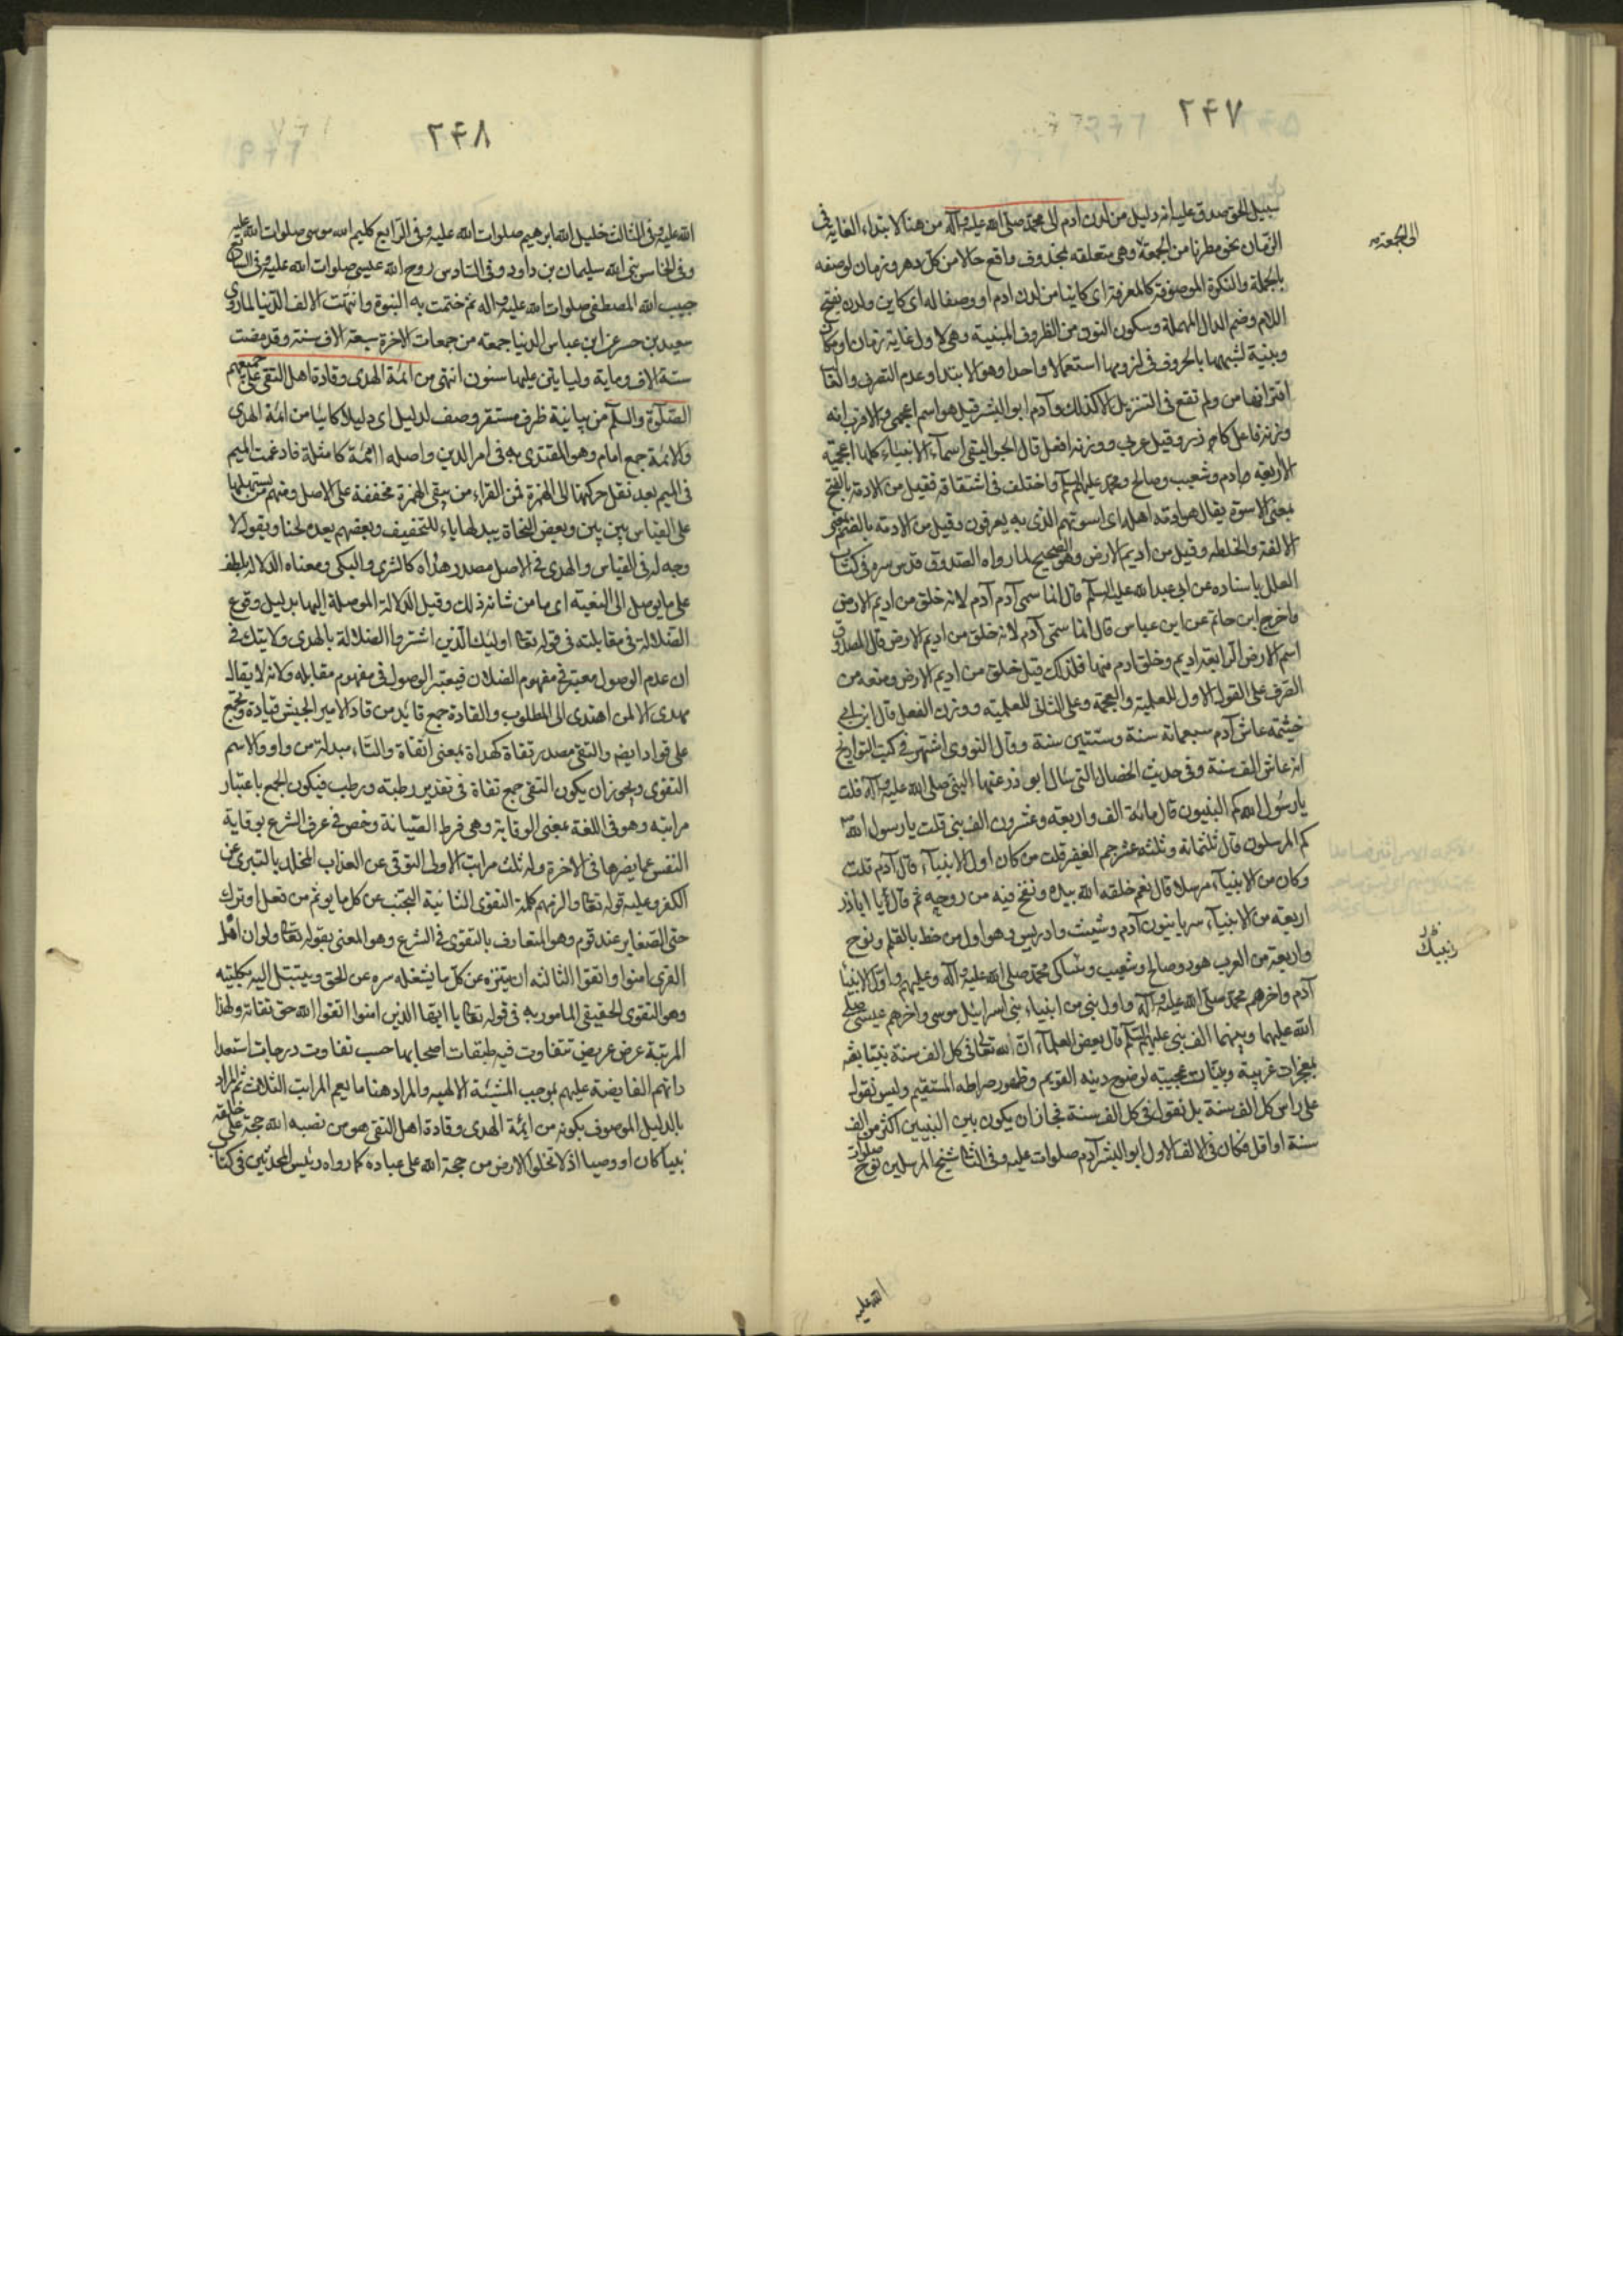 ٢۴٧
سبيل الحق صدق عليه انه دليل من لدن ادم الى محمد صلى الله عليه وآله من هنا لابتداء الغاية فى
الزمان نحو مطرنا من الجمعة وهى متعلقه بمحذوف واقع حالا من كل دهر وزمان لوصفه
الى الجمعة صح
بالجملة والنكرة الموصوفة كالمعرفة اى كاينا من لدن ادم او وصفا له اى كاين ولدن بفتح
اللام وضم الدال المهملة وسكون النون من الظروف المبنية وهى لاول غاية زمان او مكان
وبنيت لشبهها بالحروف فى لزومها استعمالا واحدا وهو الابتدا وعدم التصرف والغالب
اقترانها من ولم تقع فى التنزيل الا كذلك وآدم ابو البشر قيل هو اسم اعجمى والاقرب انه
وزنه فاعل كآزر وقيل عربى ووزنه افعل قال الجواليقى اسمآء الانبياء كلها اعجمية
الا اربعه ادم وشعيب وصالح ومحمد عليهم السلم واختلف فى اشتقاقه فقيل من الادمة بالفتح
بمعنى الاسوة يقال هو ادمة اهله اى اسوتهم الذى به يعرفون وقيل من الادمة بالضم بمعنى
الالفة والخلطه وقيل من اديم الارض وهو الصحيح لما رواه الصدوق قدس سره فى كتاب
العلل باسناده عن ابى عبد الله عليه السلم قال انما سمى آدم آدم لانه خلق من اديم الارض
واخرج ابن حاتم عن ابن عباس قال انما سمى آدم لانه خلق من اديم الارض قال الصدوق
اسم الارض الرابعة اديم وخلق ادم منها فلذلك قيل خلق من اديم الارض ومنعه من
الصرف على القول الاول للعلمية والعجمة وعلى الثانى للعلميه ووزن الفعل قال ابن ابى
خيثمه عاش آدم سبعمائة سنة وستين سنة وقال النووى اشتهر فى كتب التواريخ
انه عاش الف سنة وفى حديث الخصال التى سال ابو ذر عنها النبى صلى الله عليه وآله قلت
يا رسول الله كم النبيون قال مائة الف واربعه وعشرون الف نبى قلت يا رسول الله
كم المرسلون قال ثلثمائة وثلثه عشر جم الغفير قلت من كان اول الانبيآء قال آدم قلت
وكان من الانبيآء مرسلا قال نعم خلقه الله بيده ونفخ فيه من روحه ثم قال يا اباذر
اربعة من الانبيآء سريانيون آدم وشيث وادريس وهو اول من خط بالقلم ونوح
واربعة من العرب هود وصالح وشعيب ونبيك محمد صلى الله عليه وآله وعليهم واول الانبيا
آدم واخرهم محمد صلى الله عليه وآله واول نبى من انبياء بنى اسرائيل موسى واخرهم عيسى صلى
الله عليهما وبينهما الف نبى عليهم السلم قال بعض العلمآء ان الله تعالى فى كل الف سنة نبيا بعثه
بمعجزات غريبة وبينات عجيبه لوضوح دينه القويم وظهور صراطه المستقيم وليس نقول
على راس كل الف سنة بل نقول فى كل الف سنة فجاز ان يكون بين النبيين اكثر من الف
سنة او اقل فكان فى الالف الاول ابو البشر آدم صلوات عليه وفى الثانى شيخ المرسلين نوح صلوات
نبيك
الله عليه
٢۴٨
الله عليه وفى الثالث خليل الله ابرهيم صلوات الله عليه وفى الرابع كليم الله موسى صلوات الله عليه
وفى الخامس نبى الله سليمان بن داود وفى السادس روح الله عيسى صلوات الله عليه وفى السابع
حبيب الله المصطفى صلوات الله عليه وآله ثم ختمت به النبوة وانتهت الالف الدنيا لما روى
سعيد بن عن ابن عباس الدنيا جمعة من جمعات الاخرة سبعة الاف سنة وقد مضت
ستة الاف وماية وليأتين عليها سنون انتهى من ائمة الهدى وقادة اهل التقى على جميعهم
الصلوة والسلم من بيانية ظرف مستقر وصف لدليل اى دليلا كاينا من ائمة الهدى
والائمة جمع امام وهو المقتدى به فى امر الدين واصله أاممة كامثلة فادغمت الميم
فى الميم بعد نقل حركتها الى الهمزة فمن القراء من يبقى الهمزة مخففة على الاصل ومنهم من يسهلها
على القياس بين بين وبعض النحاة يبدلها ياء للتخفيف وبعضهم يعده لحنا ويقول لا
وجه له فى القياس والهدى فى الاصل مصدر هداه كالسرى والبكى ومعناه الدلالة بلطف
على ما يوصل الى البغية اى ما من شانه ذلك وقيل الدلالة الموصلة اليها بدليل وقوع
الضلالة فى مقابلته فى قوله تعالى اولئك الذين اشتروا الضلالة بالهدى ولا شك فى
ان عدم الوصول معتبر فى مفهوم الضلال فيعتبر الوصول فى مفهوم مقابله ولانه لا يقال
مهدى الا لمن اهتدى الى المطلوب والقادة جمع قائد من قاد الامير الجيش قيادة ويجمع
على قواد ايضا والتقى مصدر تقاة كهداة بمعنى اتقاة والتاء مبدلة من واو والاسم
التقوى ويجوز ان يكون التقى جمع تقاة فى تقدير رطبة ورطب فيكون الجمع باعتبار
مراتبه وهو فى اللغة بمعنى الوقاية وهى فرط الصيانة وخص فى عرف الشرع بوقاية
النفس عما يضرها فى الاخرة وله ثلث مراتب الاولى التوقى عن العذاب المخلد بالتبرى عن
الكفر وعليه قوله تعالى والزمهم كلمة التقوى الثانية التجنب عن كل ما يوثم من فعل او ترك
حتى الصغاير عند قوم وهو المتعارف بالتقوى فى الشرع وهو المعنى بقوله تعالى ولو ان اهل
القرى امنوا واتقوا الثالثه ان يتنزه عن كل ما يشغله سره عن الحق ويتبتل اليه بكليته
وهو التقوى الحقيقى المامور به فى قوله تعالى يا ايها الذين امنوا اتقوا الله حق تقاته ولهذا
المرتبة عرض عريض تتفاوت فيه طبقات اصحابها حسب تفاوت درجات استعدا
داتهم الفايضة عليهم بموجب المشيئة الالهيه والمراد هنا ما يعم المراتب الثلاث ثم المراد
بالدليل الموصوف بكونه من ائمة الهدى وقادة اهل التقى هو من نصبه الله حجة على خلقه
نبيا كان او وصيا اذ لا تخلو الارض من حجة الله على عباده كما رواه رئيس المحدثين فى كتاب